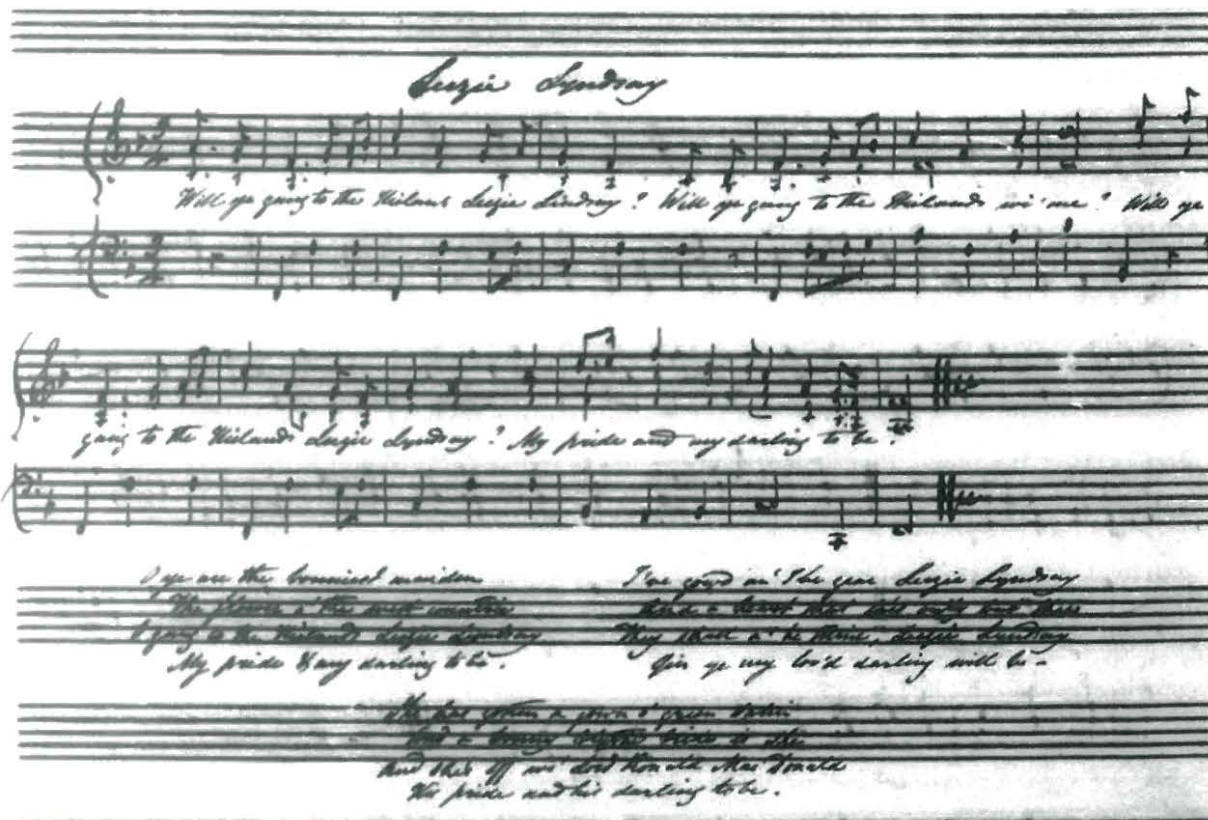 Suzie Lyndsay
Will ye gang to the Hielans Suzie Lindsay? Will ye gang to the Hielands wi' me? Will ye
gang to the Hielands Suzie Lyndsay? My pride and my darling to be.
O ye are the bonniest maiden
The flower o' the west countrie
O gang to the Hielands Suzie Lyndsay
My pride & my darling to be.
I've gowd an' I've gear Suzie Lyndsay
And a heart that lo'es only but thee
They shall a' be thine, Suzie Lyndsay
Gin ye my lov'd darling will be.
She has gotten a gown o' green satin
And a bonny blythe bride is she
And she's off wi' Lord Ronald Mac Donald
His pride and his darling to be.